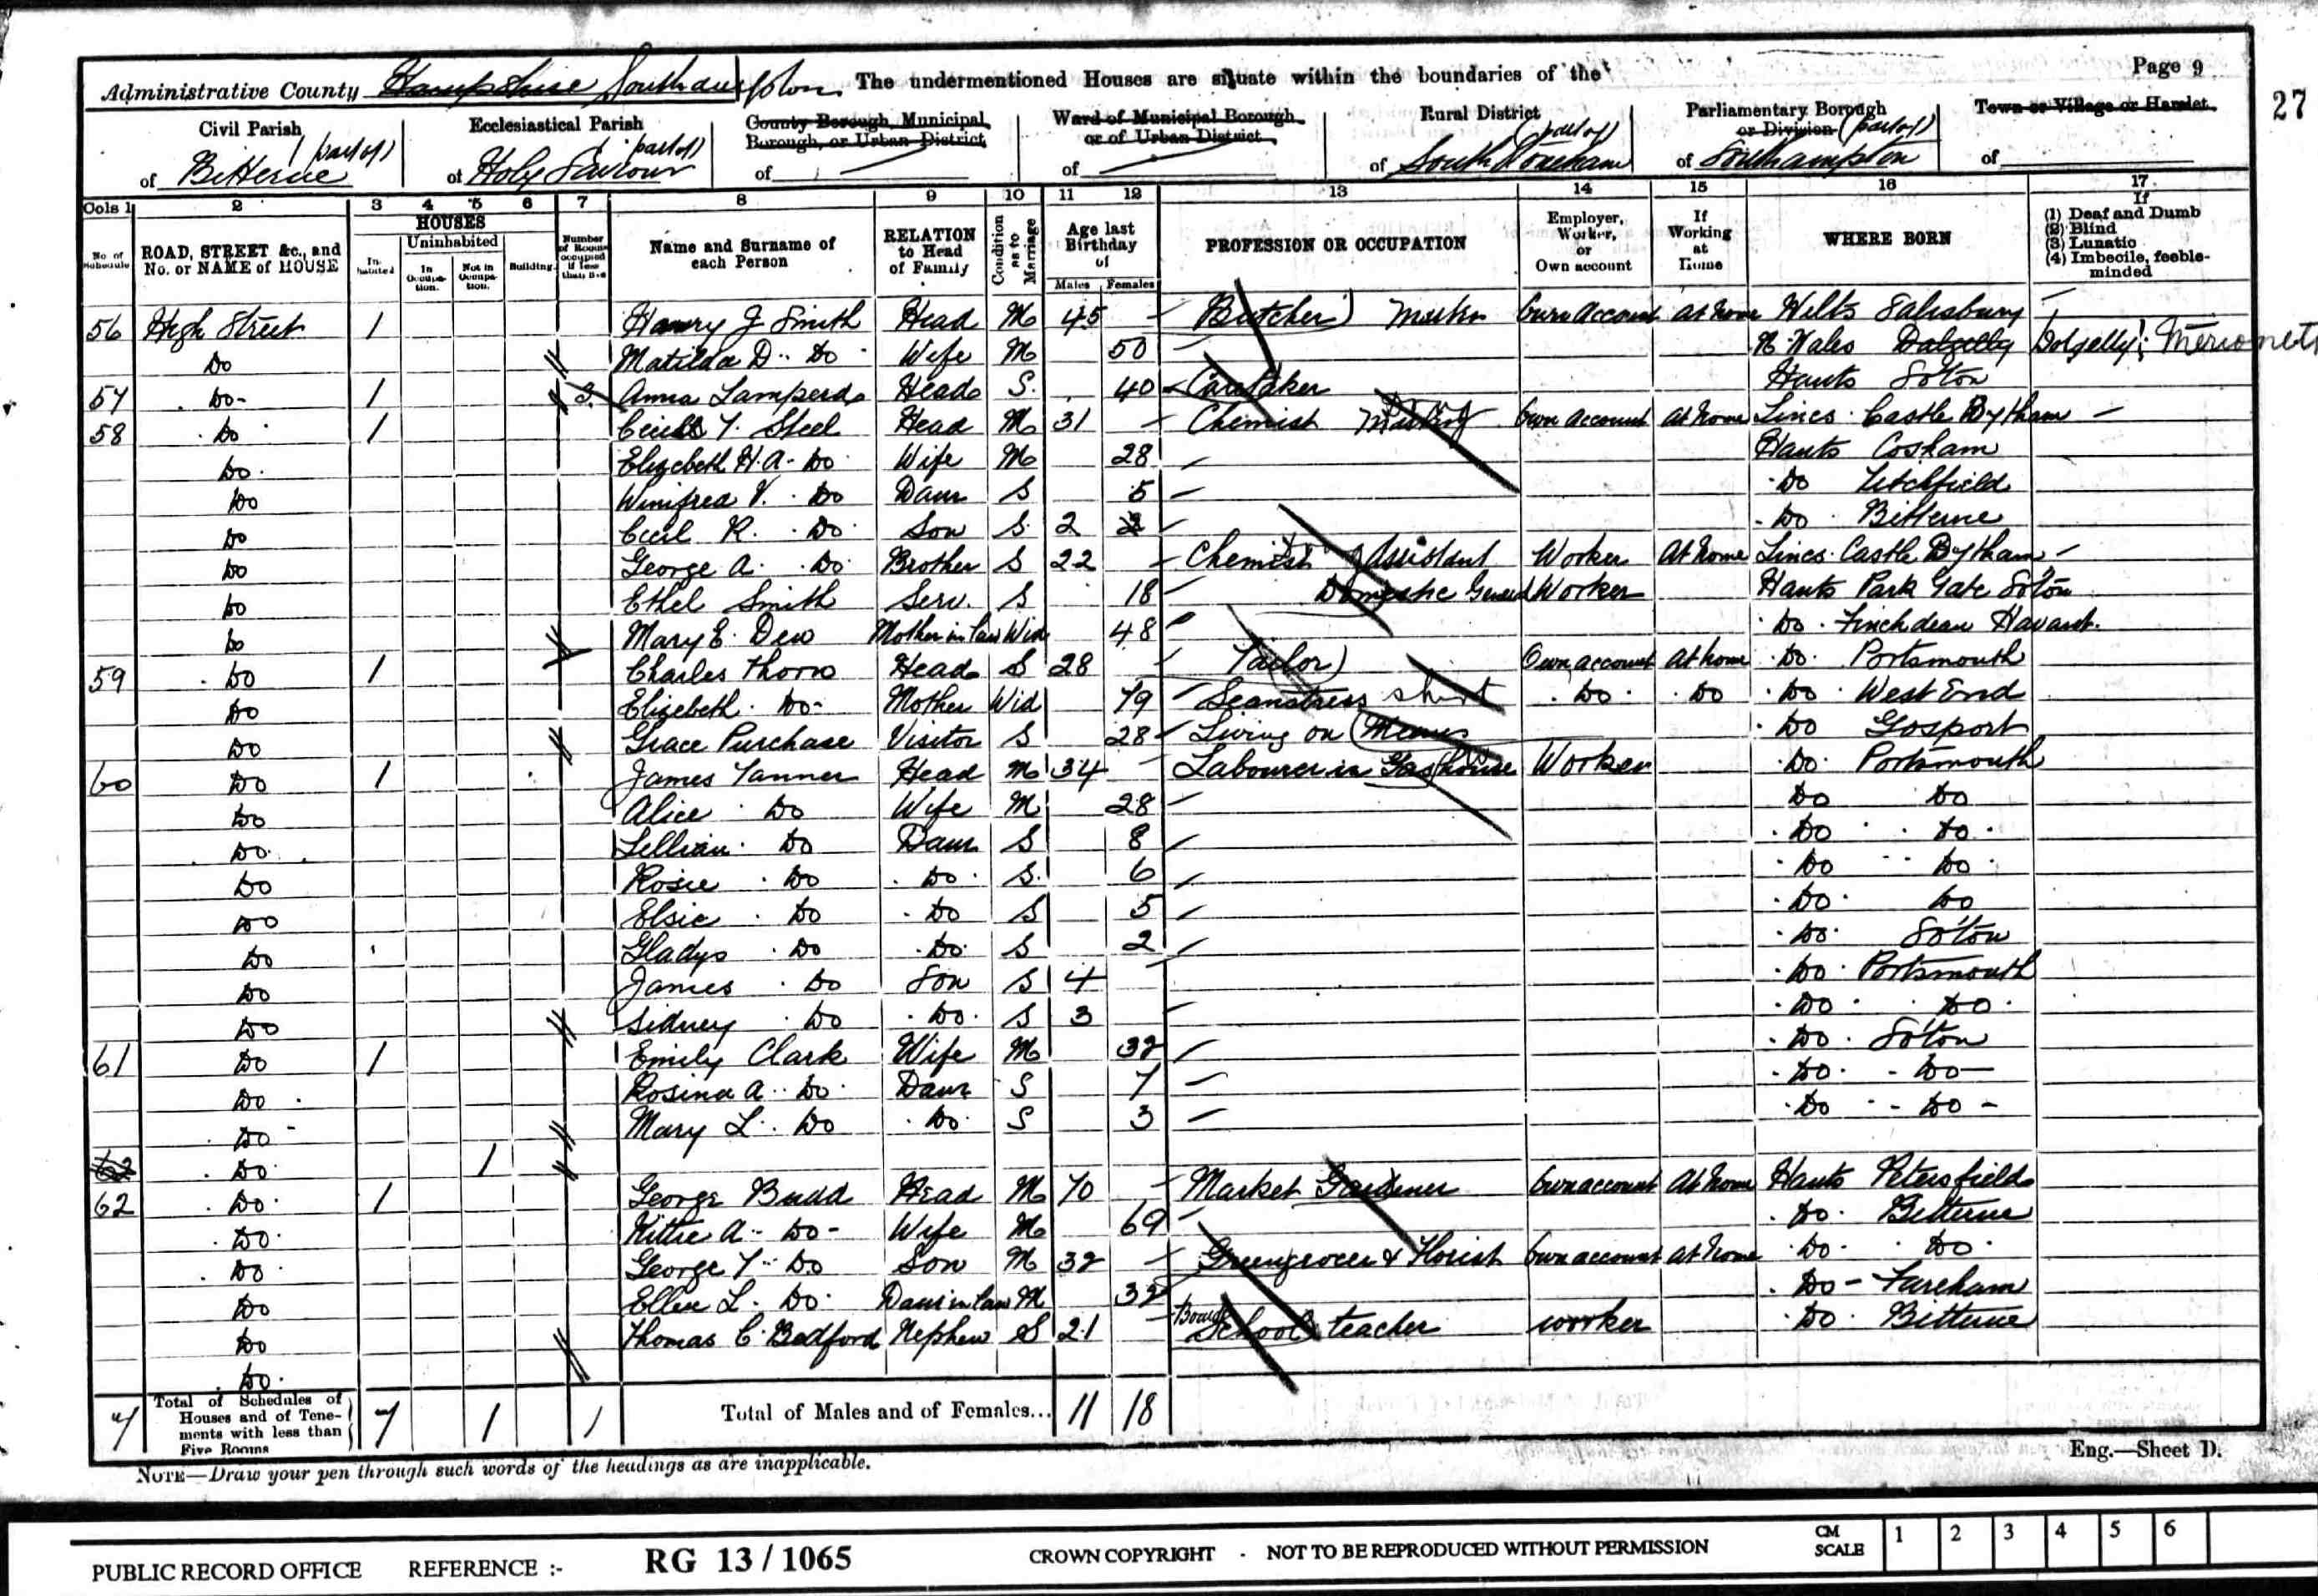 Page 9
27
Administrative County Hampshire Southampton The undermentioned Houses are situate within the boundaries of the
Civil Parish of Bitterne (part of)
Ecclesiastical Parish of Holy Saviour (part of)
County Borough, Municipal Borough, or Urban District of
Ward of Municipal Borough or of Urban District of
Rural District of South Stoneham (part of)
Parliamentary Borough or Division of Southampton (part of)
Town or Village or Hamlet of
Cols 1 2 3 4 5 6 7 8 9 10 11 12 13 14 15 16 17
No. of Schedule
ROAD, STREET &c., and No. or NAME of HOUSE
HOUSES
Inhabited
Uninhabited
In Occupation.
Not in Occupation.
Building
Number of Rooms occupied if less than five
Name and Surname of each Person
RELATION to Head of Family
Condition as to Marriage
Age last Birthday of
Males Females
PROFESSION OR OCCUPATION
Employer, Worker, or Own account
If Working at Home
WHERE BORN
If
(1) Deaf and Dumb
(2) Blind
(3) Lunatic
(4) Imbecile, feeble-minded
56 High Street 1 Harry J Smith Head M 45 Butcher Own Account At home Wilts Salisbury
Do Matilda D Do Wife M 50 N. Wales Dolgelly Dolgelly: Merioneth
57 Do 1 3 Anna Lamperd Head S. 40 Caretaker Hants Soton
58 Do 1 Cecil T. Steel Head M 31 Chemist Own account At home Lincs. Castle Bytham
Do Elizebeth H. A. Do Wife M 28 Hants Cosham
Do Winifred V. Do Daur S 5 Do Titchfield
Do Cecil R. Do Son S 2 2 Do Bitterne
Do George A. Do Brother S 22 Chemist Assistant Worker At home Lincs. Castle Bytham
Do Ethel Smith Serv. S 18 Domestic General Worker Hants Park Gate Soton
Do Mary E. Dew Mother in law Wid 48 Do Finchdean Havant.
59 Do 1 Charles Thorn Head S 28 Tailor Own account At home Do Portsmouth
Do Elizebeth Do Mother Wid 79 Seamstress shirt Do Do Do West End
Do Grace Purchase Visitor S 28 Living on Means Do Gosport
60 Do 1 James Tanner Head M 34 Labourer in Gas house Worker Do Portsmouth
Do Alice Do Wife M 28 Do Do
Do Lillian Do Daur S 8 Do Do
Do Rosie Do Do S. 6 Do Do
Do Elsie Do Do S 5 Do Do
Do Gladys Do Do S 2 Do Soton
Do James Do Son S 4 Do Portsmouth
Do Sidney Do Do S 3 Do Do
61 Do 1 Emily Clark Wife M 32 Do Soton
Do Rosina A Do Daur S 7 Do Do
Do Mary L. Do Do S 3 Do Do
62 Do 1
62 Do 1 George Budd Head M 70 Market Gardener Own account At home Hants Petersfield
Do Kittie A Do Wife M 69 Do Bitterne
Do George T Do Son M 32 Greengrocer & Florist Own account At home Do Do
Do Ellen L. Do Daur in law M 32 Do Fareham
Do Thomas C. Bedford Nephew S 21 Board School teacher worker Do Bitterne
Do
7 Total of Schedules of Houses and of Tenements with less than Five Rooms 7 1 1 Total of Males and of Females... 11 18
NOTE—Draw your pen through such words of the headings as are inapplicable.
Eng.—Sheet D.
PUBLIC RECORD OFFICE REFERENCE :- RG 13 / 1065 CROWN COPYRIGHT - NOT TO BE REPRODUCED WITHOUT PERMISSION CM SCALE 1 2 3 4 5 6